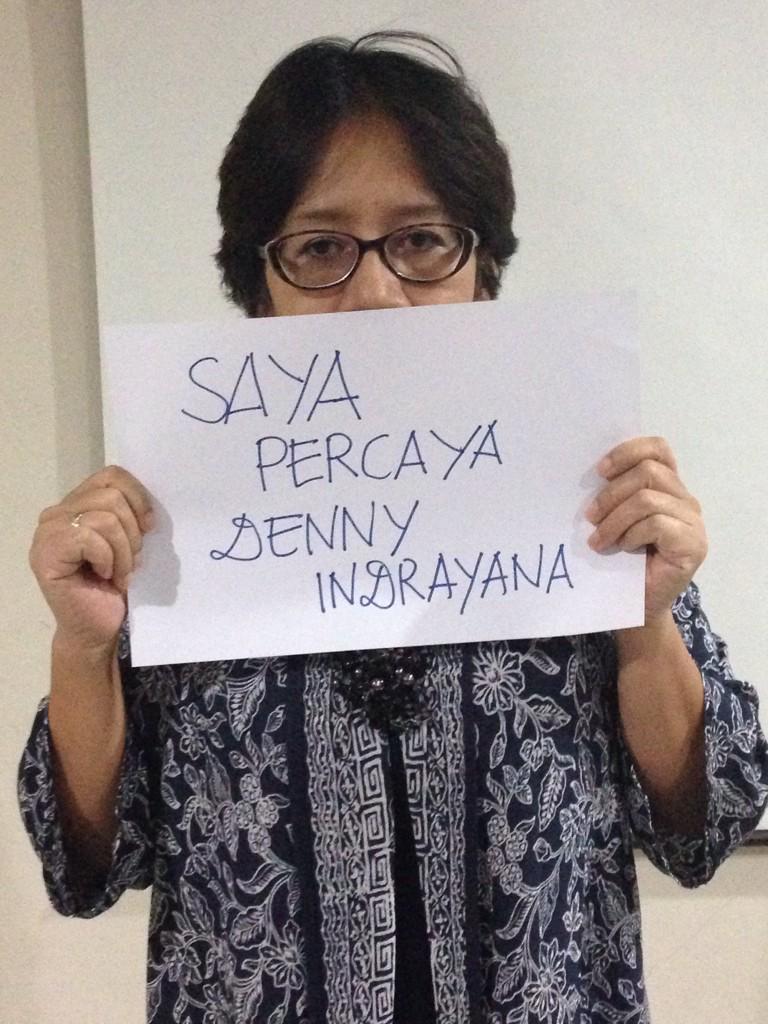 SAYA
PERCAYA
DENNY
INDRAYANA